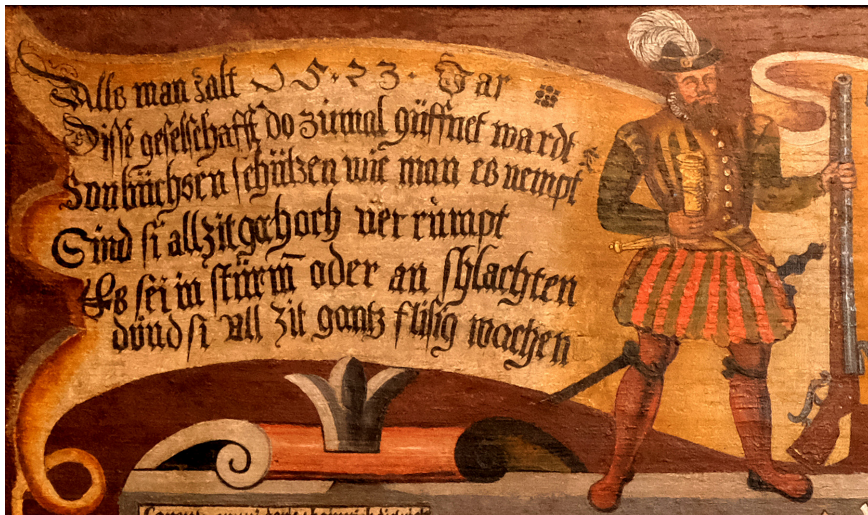 Alls man zalt 1523. Jar
Disse geselschafft do zůmal güffnet wardt
Sonbüchsen schützen wie man es nempt
Sind si allzit gar hoch verrümpt
Es sei in stürm̄ oder an schlachten
důnd si all zit gantz flisig wachen